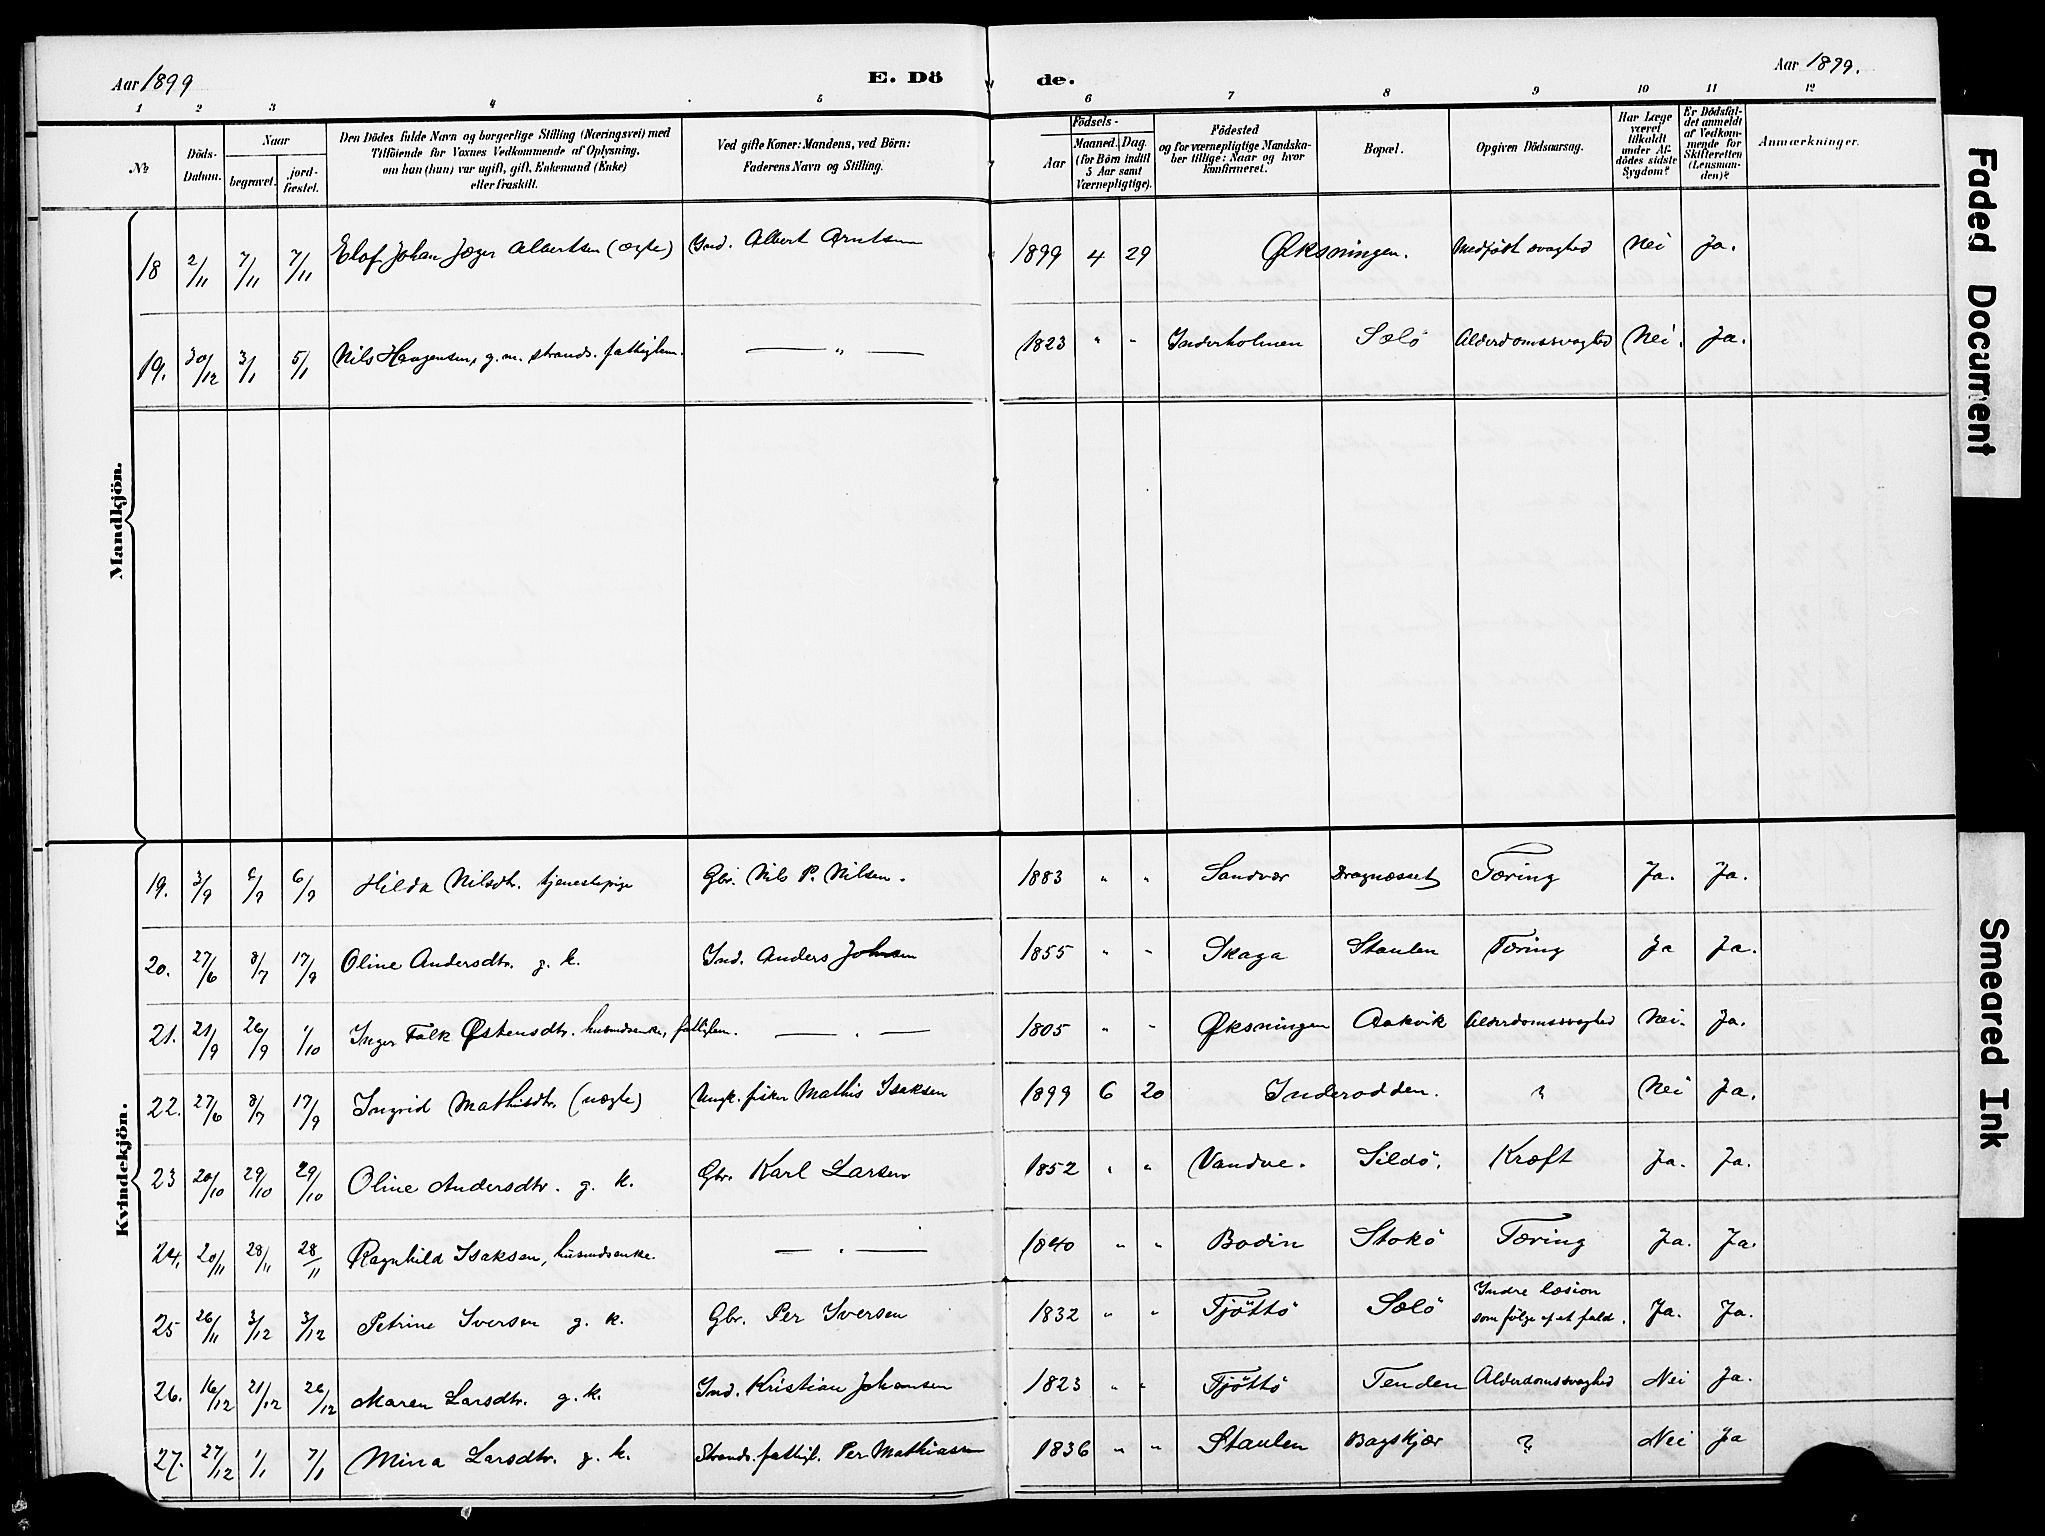 Aar 1899
E. Dö
de.
Aar 1899.
1 2 3 4 5 6 7 8 9 10 11 12
No
Döds-
Datum.
Naar
begravet.
jord-
fæstet.
Den Dödes fulde Navn og borgerlige Stilling (Næringsvei) med
Tilföiende for Voxnes Vedkommende af Oplysning,
om han (hun) var ugift, gift, Enkemand (Enke)
eller fraskilt.
Ved gifte Koner: Mandens, ved Börn:
Faderens Navn og Stilling.
Födsels-
Aar
Maaned. Dag.
(for Börn indtil
5 Aar samt
Værnepligtige).
Födested
og for værnepligtige Mandska-
ber tillige: Naar og hvor
konfirmeret.
Bopæl.
Opgiven Dödsaarsag.
Har Læge
været
tilkaldt
under Af-
dödes sidste
Sygdom?
Er Dödsfal-
det anmeldt
af Vedkom-
mende for
Skifteretten
(Lensman-
den)?
Anmærkninger.
Mandkjön.
18 2/11 7/11 7/11 Elof Johan Jæger Albertsen (ægte) Ind. Albert Arntsen 1899 4 29 Øksningen. Medfödt svaghed Nei Ja.
19. 30/12 3/1 5/1 Nils Haagensen, g.m. strands. fattiglem. — " — 1823 " " Inderholmen Sælö Alderdomssvaghed Nei. Ja.
Kvindekjön.
19. 3/9 6/9 6/9 Hilda Nilsdtr. tjenestepige Gbr. Nils P. Nilsen. 1883 " " Sandvær Dragnæsset Tæring Ja. Ja.
20. 27/6 8/7 17/9 Oline Andersdtr. g. k. Ind. Anders Johnsen 1855 " " Skaga Staulen Tæring Ja Ja.
21. 21/9 26/9 1/10 Inger Falk Østensdtr. husmdsenke, fattiglem. — " — 1805 " " Øksningen Aakvik Alderdomssvaghed Nei. Ja.
22. 27/6 8/7 17/9 Ingrid Mathisdtr. (uægte) Ungk. fisker Mathis Isaksen 1899 6 20 Inderodden. ? Nei Ja.
23 20/10 29/10 29/10 Oline Andersdtr. g. k. Gbr. Karl Larsen 1852 " " Vandve. Sildö. Kræft Ja. Ja.
24. 20/11 28/11 28/11 Ragnhild Isaksen, husmdsenke. — " — 1840 " " Bodin Stokö Tæring Ja. Ja.
25 26/11 3/12 3/12 Petrine Iversen g. k. Gbr. Per Iversen 1832 " " Tjöttö Sælö Indre læsion
som følge af et fald. Ja. Ja.
26. 16/12 21/12 26/12 Maren Larsdtr. g. k. Ind. Kristian Johansen 1823 " " Tjöttö Tenden Alderdomssvaghed Nei Ja.
27. 27/12 1/1 7/1 Mina Larsdtr. g. k. Strands. fattigl. Per Mathiassen 1836 " " Staulen Bagskjær ? Nei Ja
Faded Document
Smeared Ink